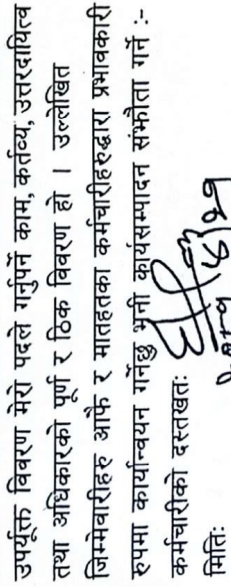 उपर्यूक्त विवरण मेरो पदले गर्नुपर्ने काम, कर्तव्य, उत्तरदायित्व
तथा अधिकारको पूर्ण र ठिक विवरण हो । उल्लेखित
जिम्मेवारीहरु आफै र मातहतका कर्मचारीहरुद्धारा प्रभावकारी
रुपमा कार्यान्वयन गर्नेछु भनी कार्यसम्पादन संझौता गर्ने :-
कर्मचारीको दस्तखतः
मितिः